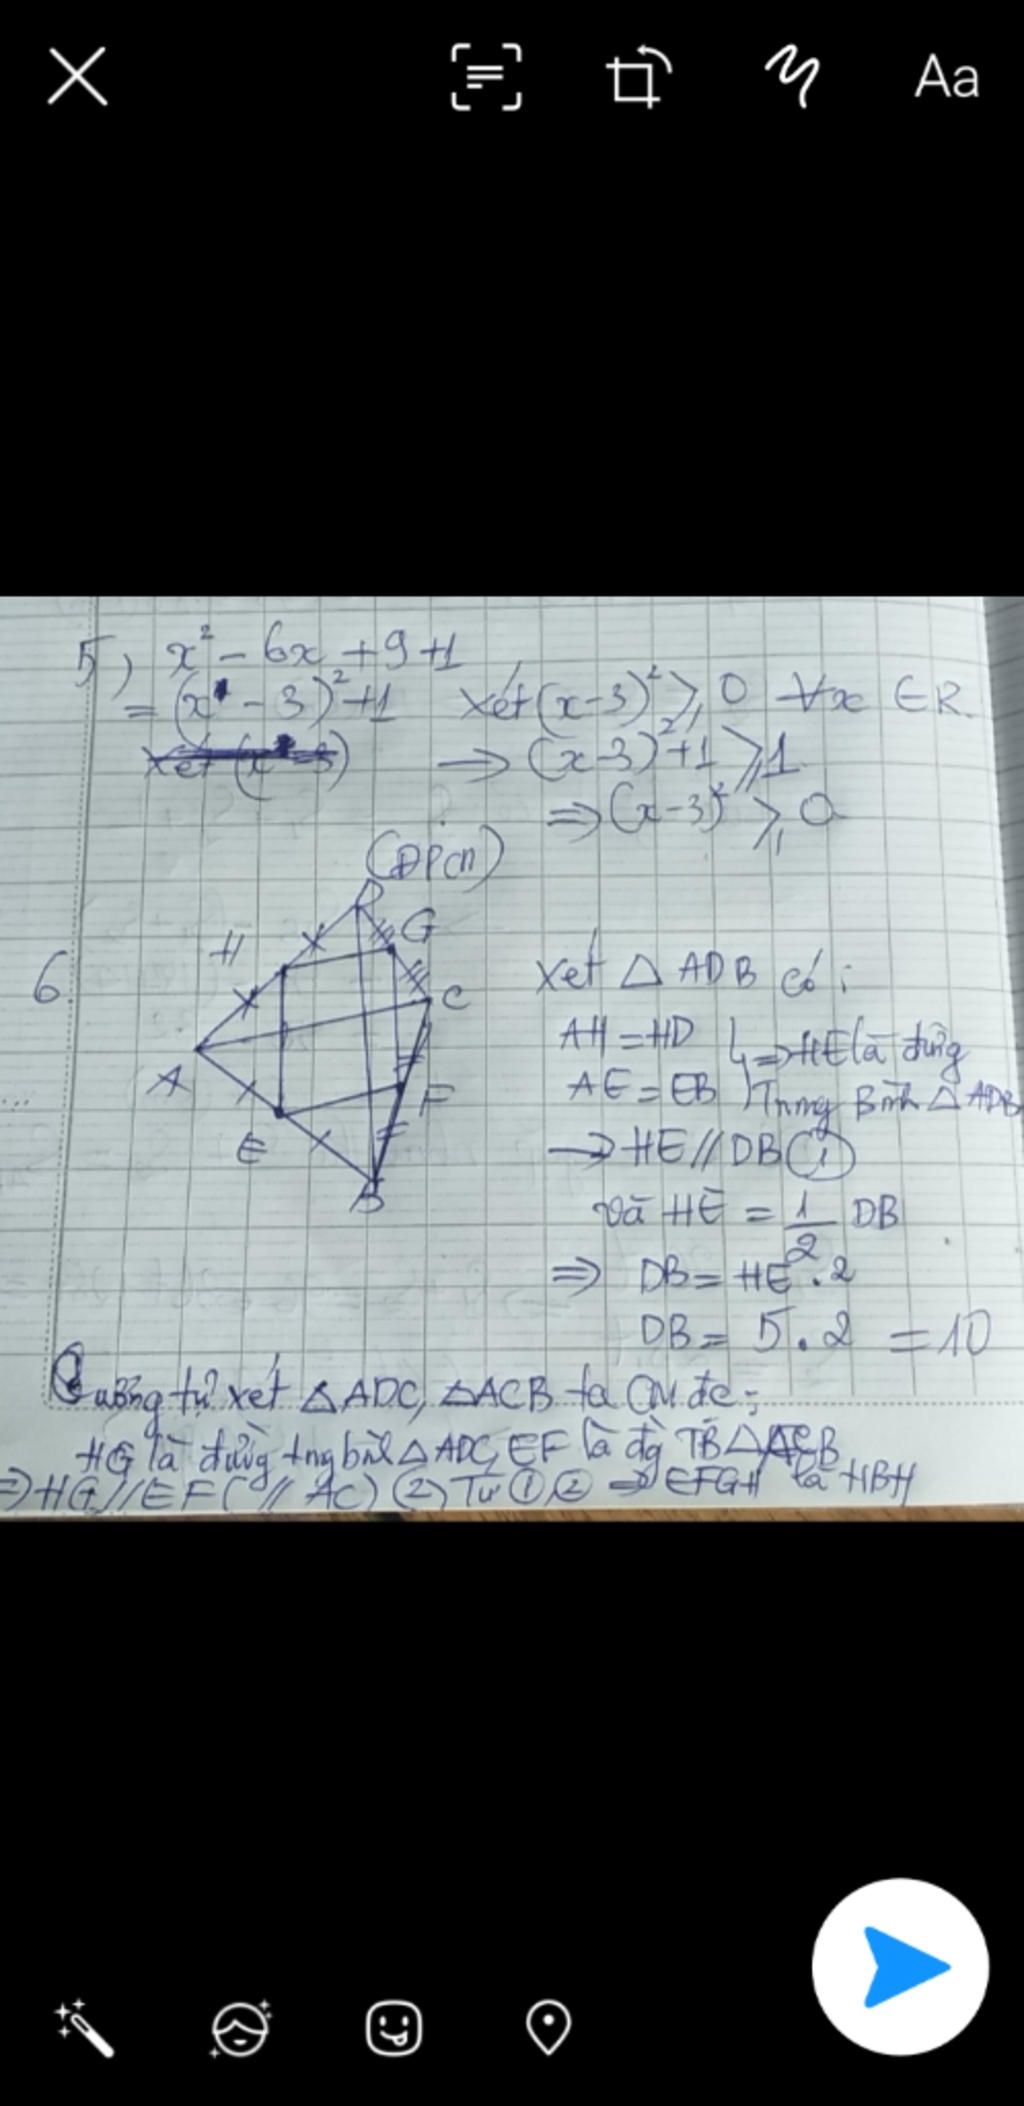 Aa
5) x² - 6x + 9 + 1
= (x - 3)² + 1 Xét (x-3)² ⩾ 0 ∀x ∈ R.
Xét (x - 3) → (x-3)² + 1 ⩾ 1
⇒ (x-3)² ⩾ 0
(ĐPCM)
6.
D
H
G
C
A
F
E
B
Xét △ ADB có:
AH = HD
AE = EB } ⇒ HE là đường
Trung Bình △ ADB
→ HE // DB ①
và HE = 1/2 DB
⇒ DB = HE . 2
DB = 5 . 2 = 10
Tương tự xét △ADC, △ACB ta CM đc:
HG là đường trng bình △ ADC, EF là đg TB △ ACB
⇒ HG // EF (// AC) ② Từ ①, ② ⇒ EFGH là HBH